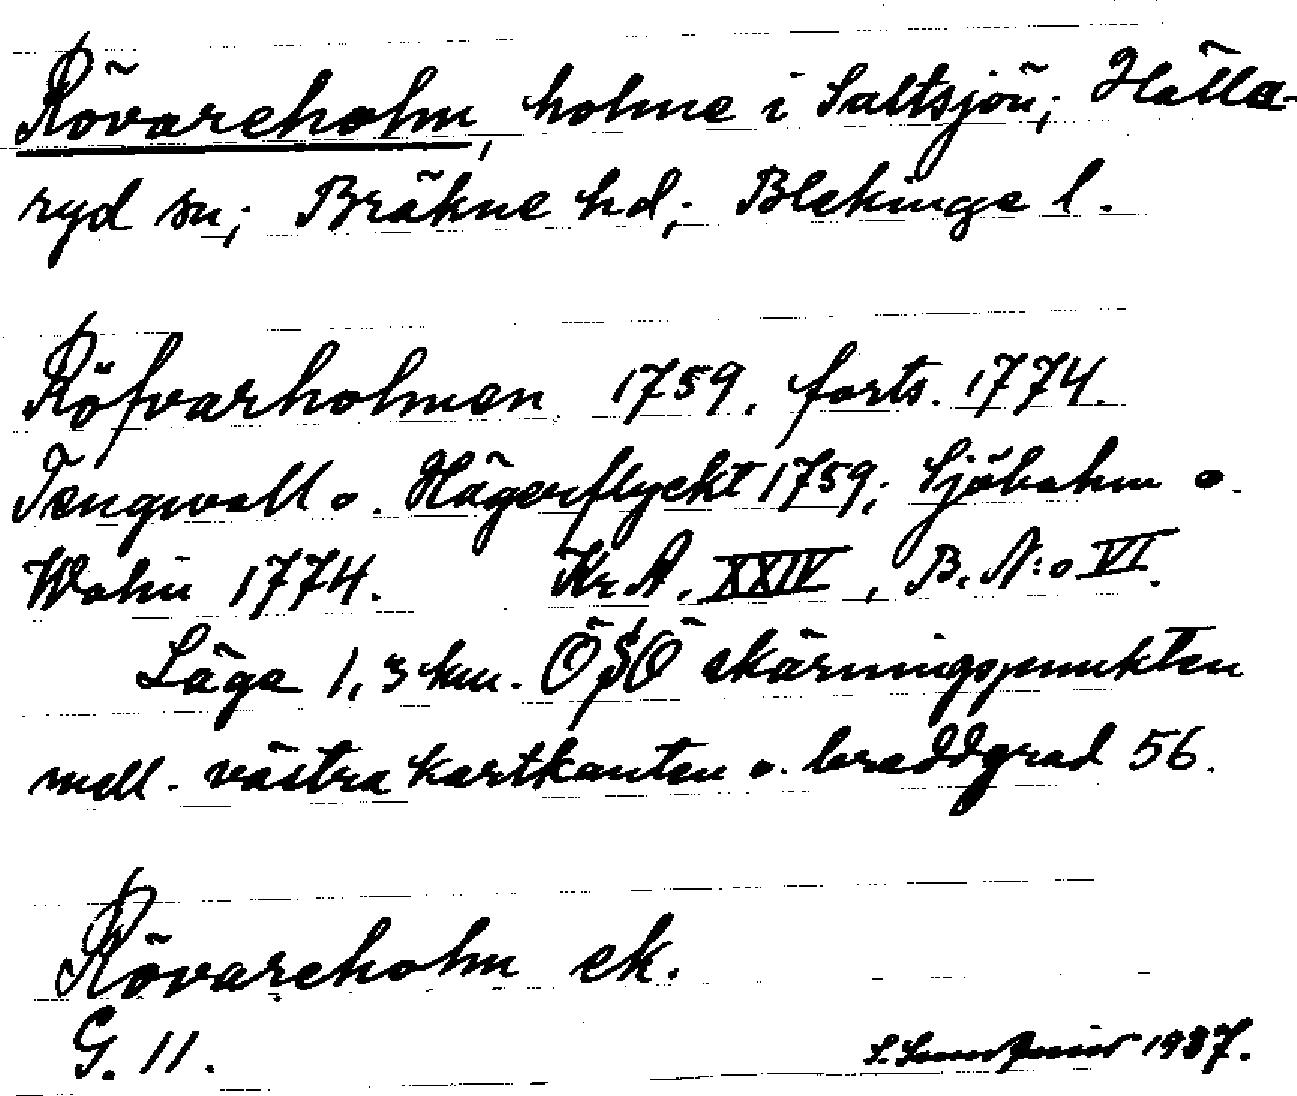 Rövareholm, holme i Saltsjön; Hälla-
ryd sn; Bräkne hd; Blekinge l.
Röfvarholmen 1759, forts. 1774.
Tengwall o. Hägerflyckt 1759; Sjöbohm o.
Wohn 1774. Kr. A. XXIV, B. N:o VI.
Läge 1,3 km. ÖSÖ skärningspunkten
mell. västra kartkanten o. breddgrad 56.
Rövareholm ek.
G. 11.
S. 1937.